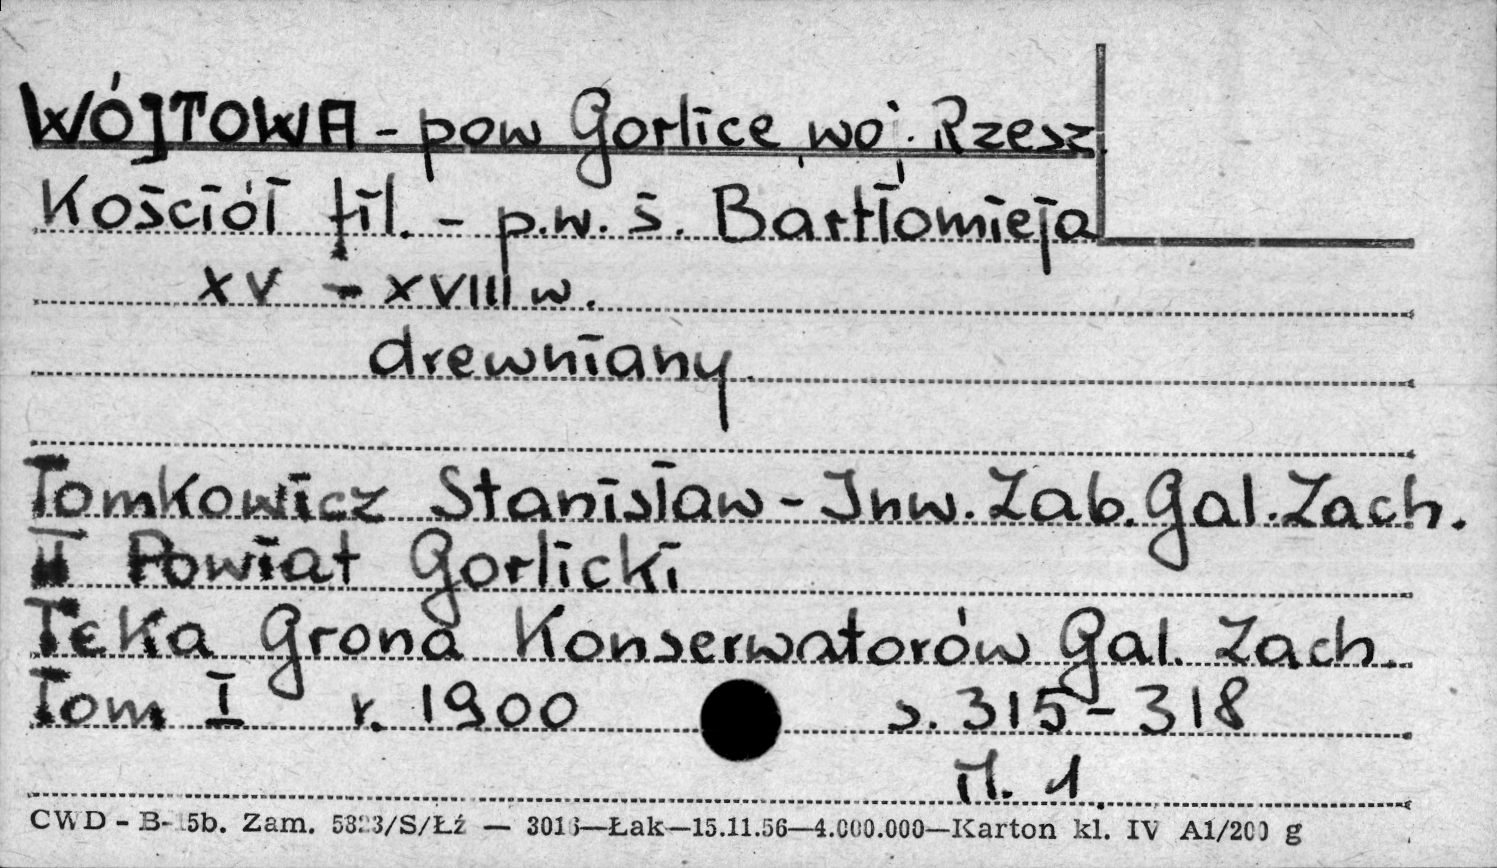 WÓJTOWA - pow Gorlice, woj. Rzesz.
Kościół fil. - p.w. ś. Bartłomieja
XV - XVIII w.
drewniany.
Tomkowicz Stanisław - Inw. Zab. Gal. Zach.
II Powiat Gorlicki
Teka Grona Konserwatorów Gal. Zach.
Tom I r. 1900 s. 315 - 318
il. 1.
CWD - B- 5b. Zam. /S/Łź — —Łak—15.11.56—4.000.000—Karton kl. IV A1/200 g